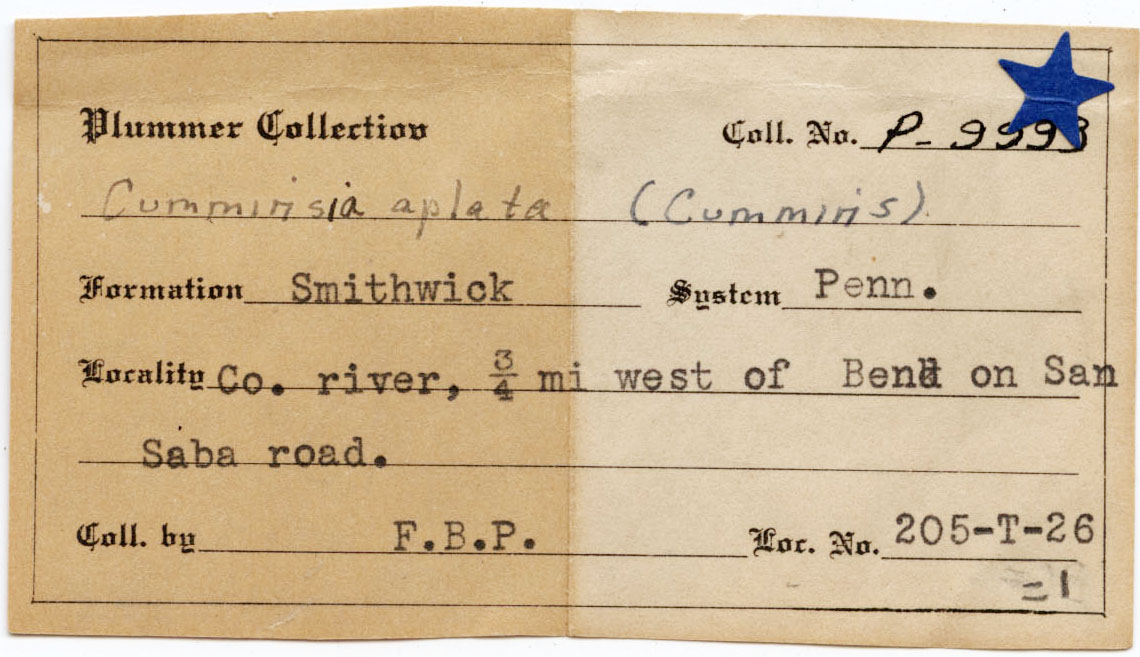 Plummer Collection Coll. No. P-9993
Cummirisia aplata (Cummiris).
Formation Smithwick System Penn.
Locality Co. river, 3/4 mi west of Bend on San
Saba road.
Coll. by F.B.P. Loc. No. 205-T-26
=1